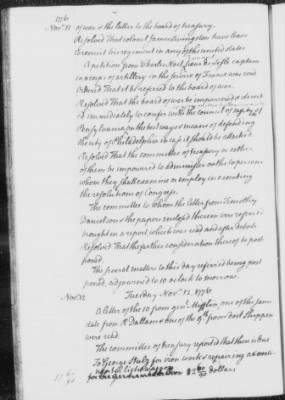 1776
Novr. 11 of war & the letter to the board of treasury.
Resolved That colonel James Livingston have leave
to recruit his regiment in any of the united states
A petition from Charles Noel Jean
captain
in a corps of artillery in the service of France was read
Ordered That it be referred to the board of war.
Resolved That the board of war be empowered & directed
immediately to confer with the council of safety of
Pensylvania on the best ways & means of defending
the city of Philadelphia in case it should be attacked
Resolved That the committee of treasury or either
of them be impowered to administer oaths to persons
whom they shall examine or employ in executing
the resolutions of Congress.
The committee to whom the letter from Timothy
Danielson & the papers enclosed therein were referred
brought in a report which was read and after debate
Resolved That the farther consideration thereof be post
poned.
The several matters to this day referred being post
poned, adjourned to 10 o'clock to morrow.
Nov. 12 Tuesday Novr. 12. 1776
A letter of the 10 from genl. Mifflin, one of the same
date from R Dallam & one of the 9th from doct Shippen
were read.
The committee of treasury reported that there is due
To George Stalz for iron work & repairing
dollars